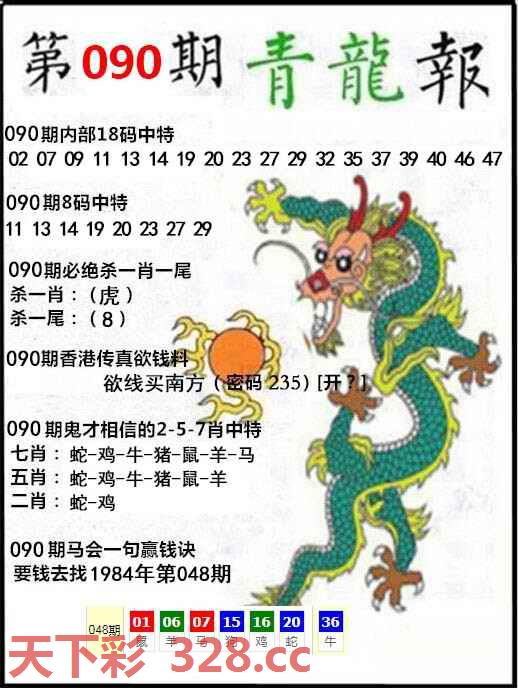 第090期青龍報
090期内部18码中特
02 07 09 11 13 14 19 20 23 27 29 32 35 37 39 40 46 47
090期8码中特
11 13 14 19 20 23 27 29
090期必绝杀一肖一尾
杀一肖：（虎）
杀一尾：（8）
090期香港传真欲钱料
欲线买南方（密码235）[开？]
090期鬼才相信的2-5-7肖中特
七肖：蛇-鸡-牛-猪-鼠-羊-马
五肖：蛇-鸡-牛-猪-鼠-羊
二肖：蛇-鸡
090期马会一句赢钱诀
要钱去找1984年第048期
048期 01 06 07 15 16 20 36
鼠 羊 马 狗 鸡 蛇 牛
天下彩 328.cc